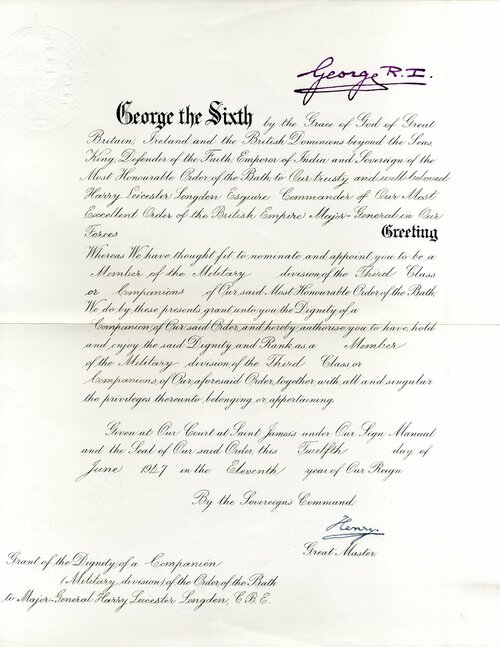 George R.I.
George the Sixth by the Grace of God of Great
Britain, Ireland and the British Dominions beyond the Seas,
King, Defender of the Faith, Emperor of India and Sovereign of the
Most Honourable Order of the Bath, to Our trusty and well beloved
Harry Leicester Longden Esquire Commander of Our Most
Excellent Order of the British Empire Major-General in Our
Forces Greeting
Whereas We have thought fit to nominate and appoint you to be a
Member of the Military division of the Third Class
or Companions of Our said Most Honourable Order of the Bath,
We do by these presents grant unto you the Dignity of a
Companion of Our said Order, and hereby authorise you to have, hold
and enjoy the said Dignity and Rank as a Member
of the Military division of the Third Class or
Companions of Our aforesaid Order, together with all and singular
the privileges thereunto belonging or appertaining.
Given at Our Court at Saint James's under Our Sign Manual
and the Seal of Our said Order this Twelfth day of
June 1947 in the Eleventh year of Our Reign
By the Sovereign's Command
Henry.
Great Master
Grant of the Dignity of a Companion
(Military division) of the Order of the Bath
to Major-General Harry Leicester Longden, C.B.E.